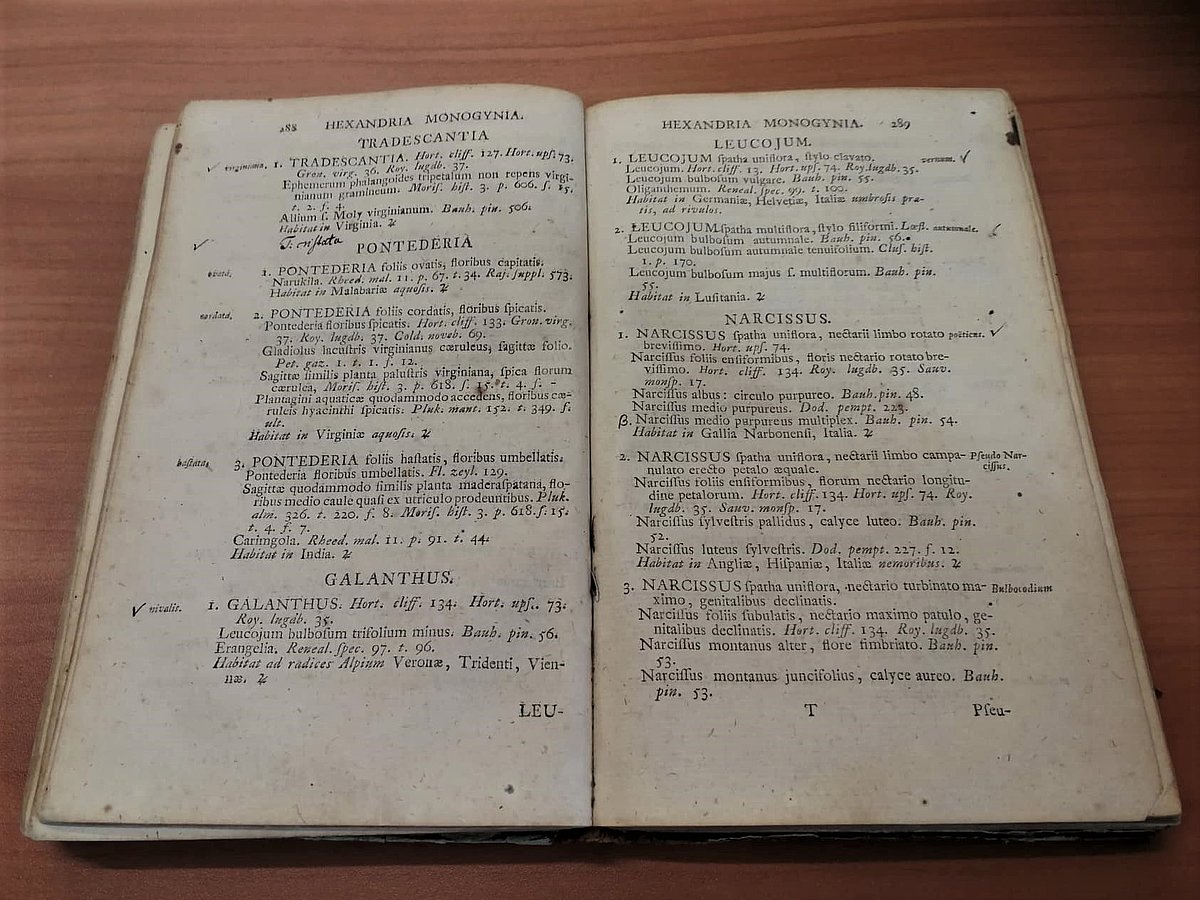 288 HEXANDRIA MONOGYNIA.
TRADESCANTIA
virginiana. 1. TRADESCANTIA. Hort. cliff. 127. Hort. upſ. 73.
Gron. virg. 36. Roy. lugdb. 37.
Ephemerum phalangoides tripetalum non repens virgi-
nianum gramineum. Moriſ. hiſt. 3. p. 606. ſ. 15.
t. 2. f. 4.
Allium ſ. Moly virginianum. Bauh. pin. 506.
Habitat in Virginia. ♃
T. criſtata
PONTEDERIA
ovata. 1. PONTEDERIA foliis ovatis, floribus capitatis.
Narukila. Rheed. mal. 11. p. 67. t. 34. Raj. ſuppl. 573.
Habitat in Malabariæ aquoſis. ♃
cordata. 2. PONTEDERIA foliis cordatis, floribus ſpicatis.
Pontederia floribus ſpicatis. Hort. cliff. 133. Gron. virg.
37. Roy. lugdb. 37. Cold. noveb. 69.
Gladiolus lacuſtris virginianus cæruleus, ſagittæ folio.
Pet. gaz. 1. t. 1. f. 12.
Sagittæ ſimilis planta paluſtris virginiana, ſpica florum
cærulea, Moriſ. hiſt. 3. p. 618. ſ. 15. t. 4. f.
Plantagini aquaticæ quodammodo accedens, floribus cæ-
ruleis hyacinthi ſpicatis. Pluk. mant. 152. t. 349. f.
ult.
Habitat in Virginiæ aquoſis. ♃
haſtata. 3. PONTEDERIA foliis haſtatis, floribus umbellatis.
Pontederia floribus umbellatis. Fl. zeyl. 129.
Sagittæ quodammodo ſimilis planta maderaſpatana, flo-
ribus medio caule quaſi ex utriculo prodeuntibus. Pluk.
alm. 326. t. 220. f. 8. Moriſ. hiſt. 3. p. 618. ſ. 15.
t. 4. f. 7.
Carimgola. Rheed. mal. 11. p. 91. t. 44.
Habitat in India. ♃
GALANTHUS.
nivalis. 1. GALANTHUS. Hort. cliff. 134. Hort. upſ. 73.
Roy. lugdb. 35.
Leucojum bulboſum trifolium minus. Bauh. pin. 56.
Erangelia. Reneal. ſpec. 97. t. 96.
Habitat ad radices Alpium Veronæ, Tridenti, Vien-
næ. ♃
LEU-
HEXANDRIA MONOGYNIA. 289
LEUCOJUM.
1. LEUCOJUM ſpatha uniflora, ſtylo clavato. vernum.
Leucojum. Hort. cliff. 13. Hort. upſ. 74. Roy. lugdb. 35.
Leucojum bulboſum vulgare. Bauh. pin. 55.
Oliganthemum. Reneal. ſpec. 99. t. 100.
Habitat in Germaniæ, Helvetiæ, Italiæ umbroſis pra-
tis, ad rivulos.
2. LEUCOJUM ſpatha multiflora, ſtylo filiformi. Lœfl. autumnale.
Leucojum bulboſum autumnale. Bauh. pin. 56.
Leucojum bulboſum autumnale tenuifolium. Cluſ. hiſt.
1. p. 170.
Leucojum bulboſum majus ſ. multiflorum. Bauh. pin.
55.
Habitat in Luſitania. ♃
NARCISSUS.
1. NARCISSUS ſpatha uniflora, nectarii limbo rotato poëticus.
breviſſimo. Hort. upſ. 74.
Narciſſus foliis enſiformibus, floris nectario rotato bre-
viſſimo. Hort. cliff. 134. Roy. lugdb. 35. Sauv.
monſp. 17.
Narciſſus albus: circulo purpureo. Bauh. pin. 48.
Narciſſus medio purpureus. Dod. pempt. 223.
β. Narciſſus medio purpureus multiplex. Bauh. pin. 54.
Habitat in Gallia Narbonenſi, Italia. ♃
2. NARCISSUS ſpatha uniflora, nectarii limbo campa- Pſeudo Nar-
nulato erecto petalo æquale. ciſſus.
Narciſſus foliis enſiformibus, florum nectario longitu-
dine petalorum. Hort. cliff. 134. Hort. upſ. 74. Roy.
lugdb. 35. Sauv. monſp. 17.
Narciſſus ſylveſtris pallidus, calyce luteo. Bauh. pin.
52.
Narciſſus luteus ſylveſtris. Dod. pempt. 227. f. 12.
Habitat in Angliæ, Hiſpaniæ, Italiæ nemoribus. ♃
3. NARCISSUS ſpatha uniflora, nectario turbinato ma- Bulbocodium
ximo, genitalibus declinatis.
Narciſſus foliis ſubulatis, nectario maximo patulo, ge-
nitalibus declinatis. Hort. cliff. 134. Roy. lugdb. 35.
Narciſſus montanus alter, flore fimbriato. Bauh. pin.
53.
Narciſſus montanus juncifolius, calyce aureo. Bauh.
pin. 53.
T Pſeu-